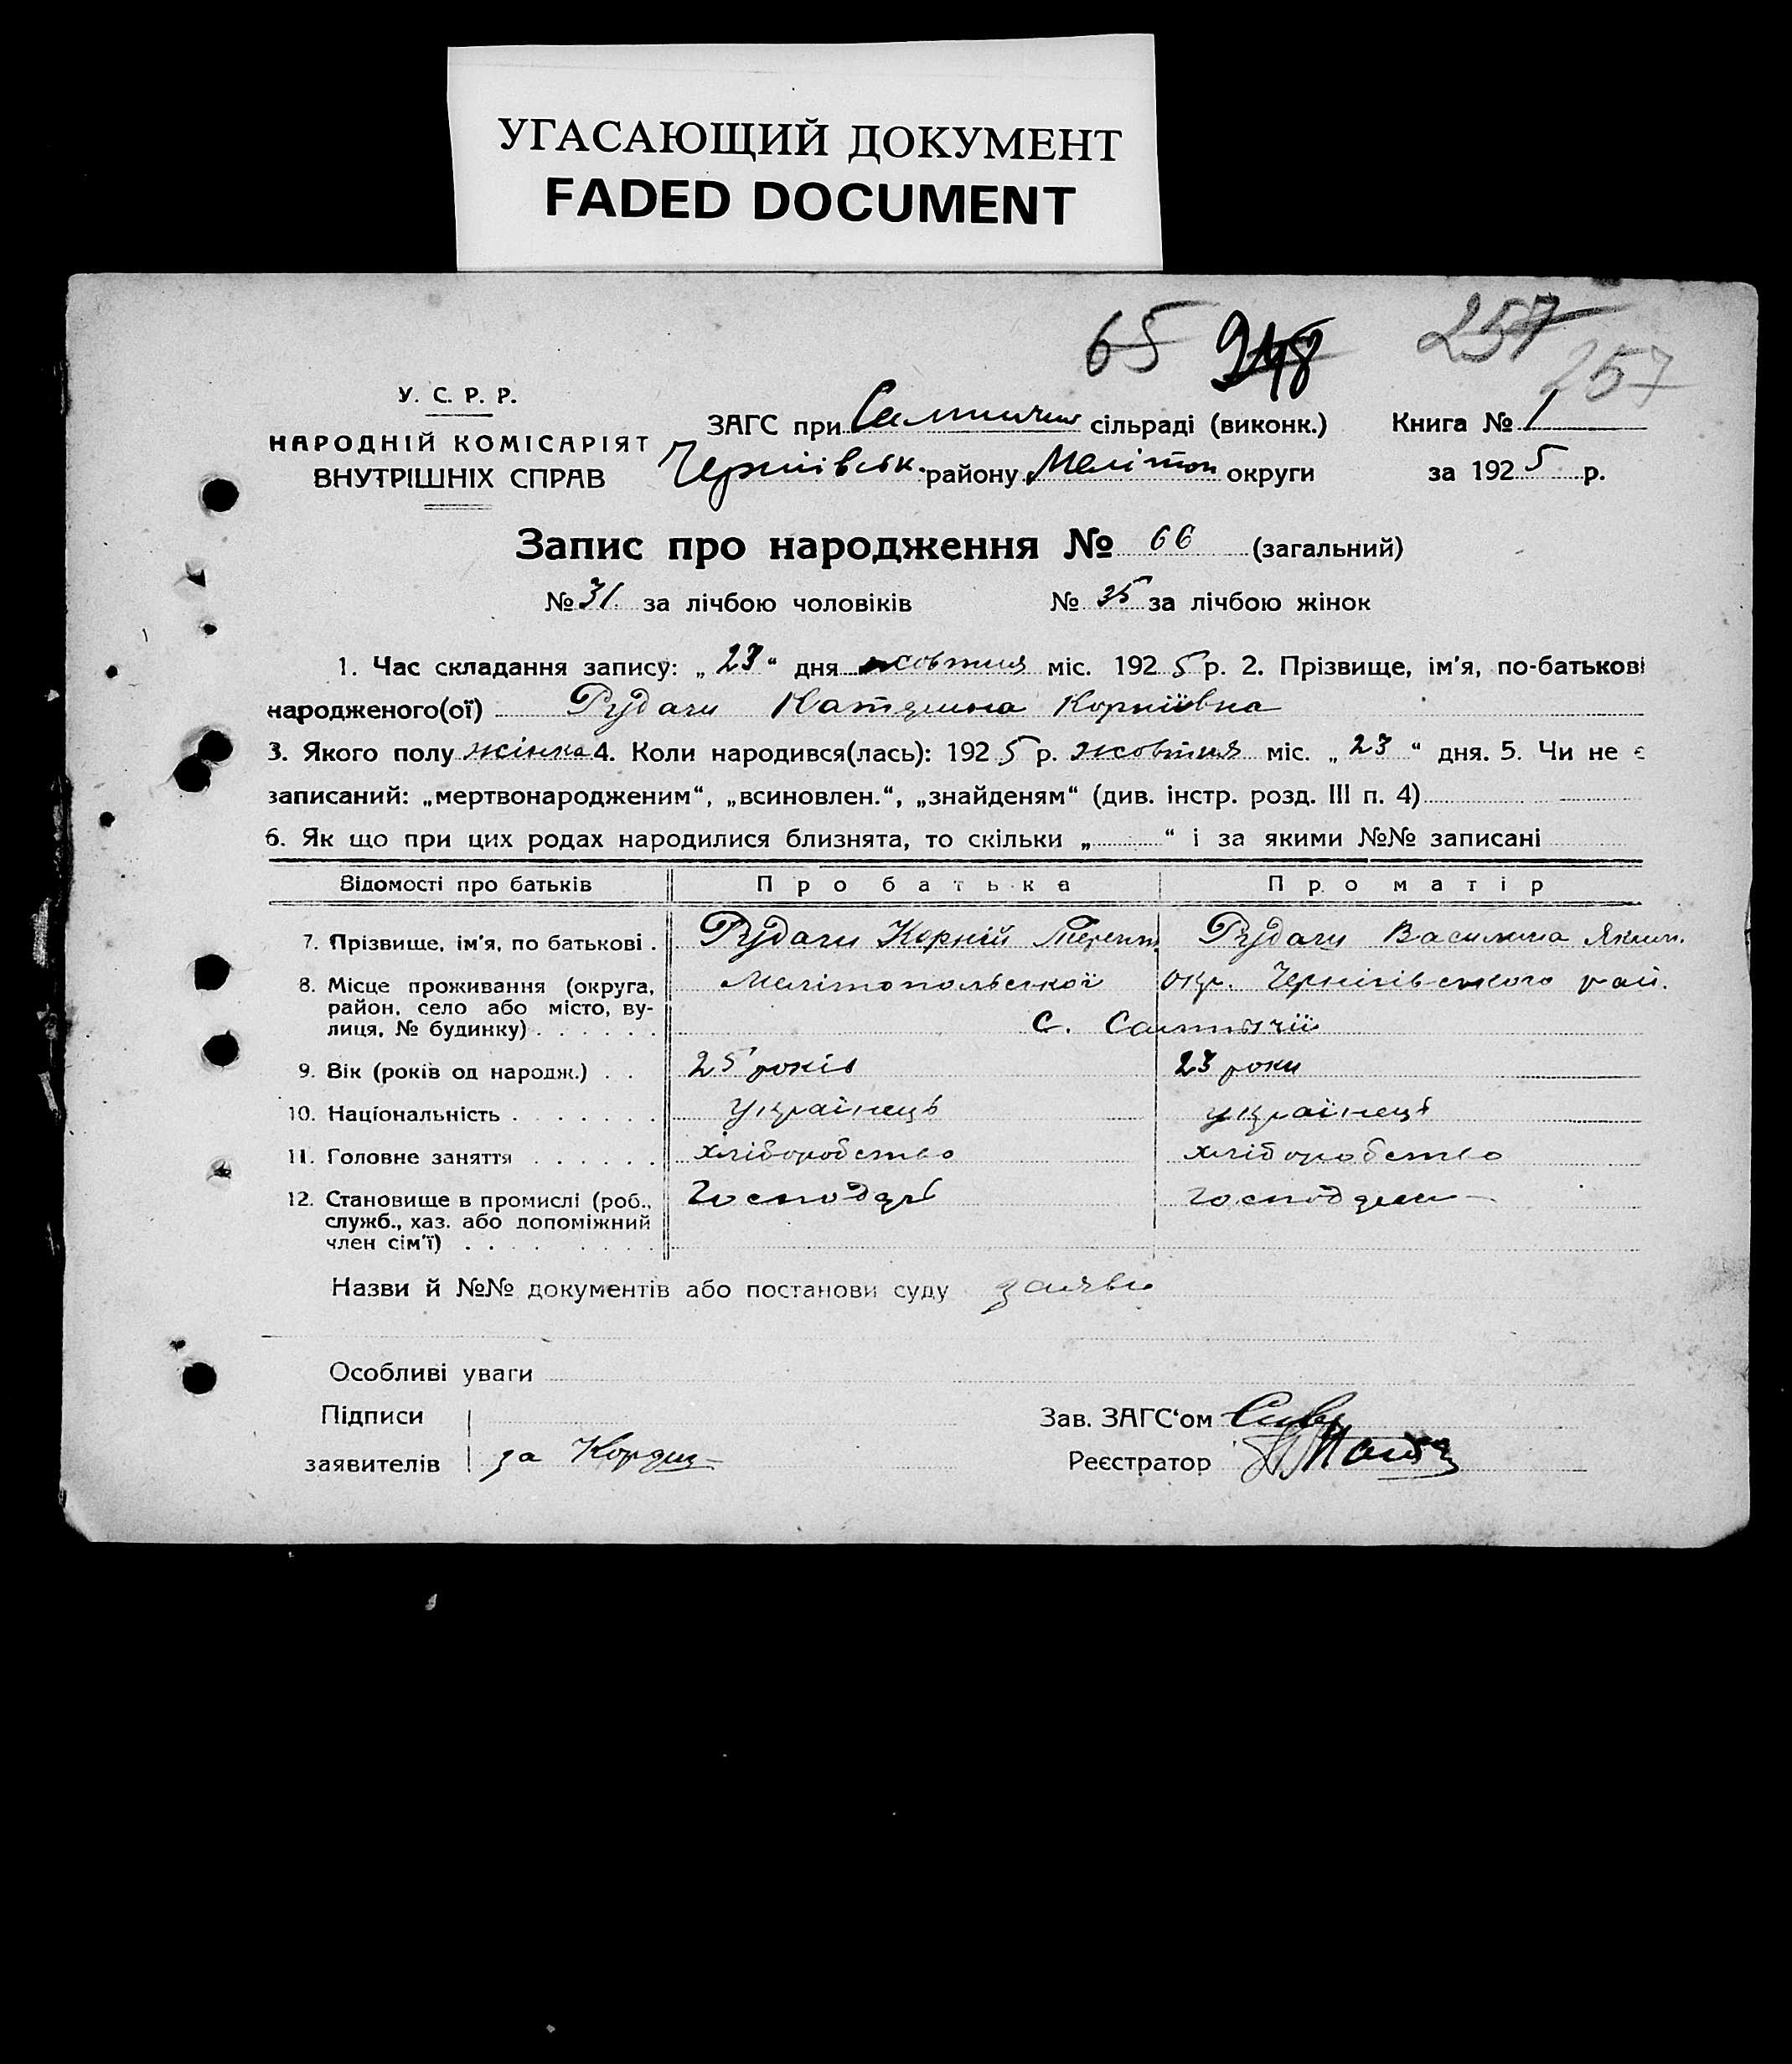 УГАСАЮЩИЙ ДОКУМЕНТ
FADED DOCUMENT
65 248 257
257
У. С. Р. Р.
НАРОДНІЙ КОМІСАРІЯТ
ВНУТРІШНІХ СПРАВ
ЗАГС при сільраді (виконк.) Книга № 1
району Мелітоп округи за 1925 р.
Запис про народження № 66 (загальний)
№ 31 за лічбою чоловіків № 35 за лічбою жінок
1. Час складання запису: „23“ дня жовтня міс. 1925 р. 2. Прізвище, ім'я, по-батькові
народженого(ої) Рудачи Катерина Корніївна
3. Якого полу жінка 4. Коли народився(лась): 1925 р. жовтня міс. „23“ дня. 5. Чи не є
записаний: „мертвонародженим“, „всиновлен.“, „знайденям“ (див. інстр. розд. III п. 4)
6. Як що при цих родах народилися близнята, то скільки „ “ і за якими №№ записані
Відомості про батьків Про батька Про матір
7. Прізвище, ім'я, по батькові . Рудачи Корній Терент. Рудачи Василина Яким.
8. Місце проживання (округа, Мелітопольської окр. Чернігівського рай.
район, село або місто, ву-
лиця, № будинку) . . . . . . с. Салтичії
9. Вік (років од народж.) . . 25 років 23 роки
10. Національність . . . . . . . українець українець
11. Головне заняття . . . . . . хліборобство хліборобство
12. Становище в промислі (роб., Господарь
служб., хаз. або допоміжний
член сім'ї) . . . . . . . .
Назви й №№ документів або постанови суду заява
Особливі уваги
Підписи Зав. ЗАГС'ом
заявителів за Реєстратор